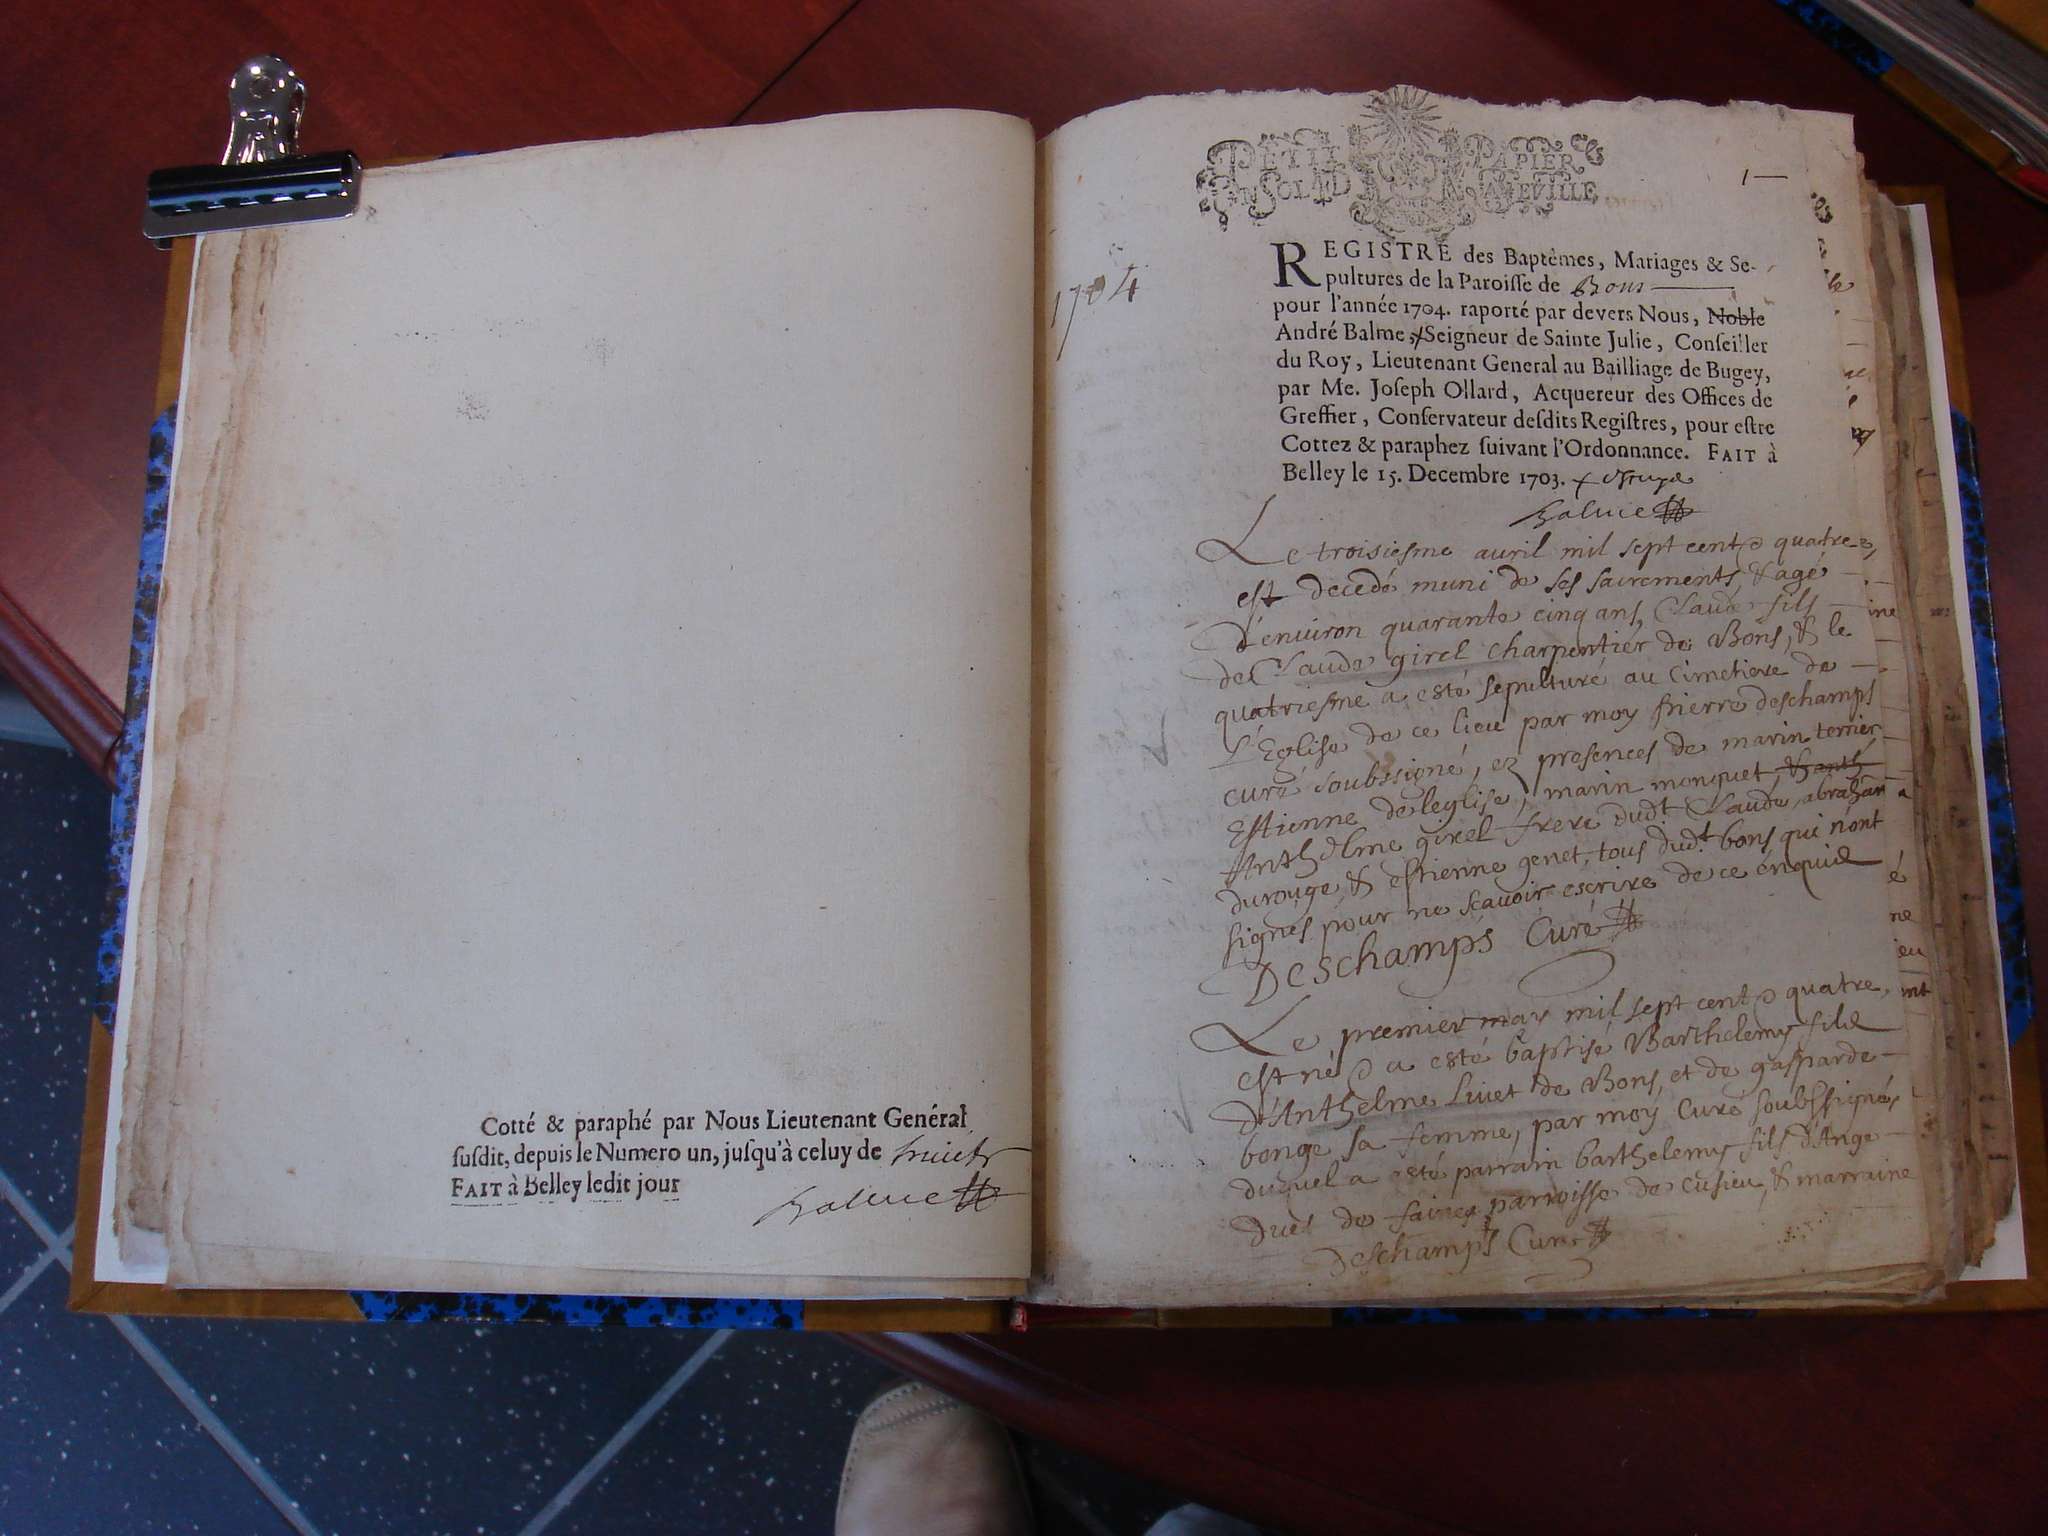 Cotté & paraphé par Nous Lieutenant Genéral
susdit, depuis le Numero un, jusqu'à celuy de huict
FAIT à Belley ledit jour
Balme
1704
PETIT PAPIER
UN SOL LA FEVILLE
1
REGISTRE des Baptêmes, Mariages & Se-
pultures de la Paroisse de Bons
pour l'année 1704. raporté par devers Nous, Noble
André Balme, Seigneur de Sainte Julie, Conseiller
du Roy, Lieutenant General au Bailliage de Bugey,
par Me. Joseph Ollard, Acquereur des Offices de
Greffier, Conservateur desdits Registres, pour estre
Cottez & paraphez suivant l'Ordonnance. FAIT à
Belley le 15. Decembre 1703.
Balme
Le troisiesme auril mil sept cent & quatre,
est decedé muni de ses sacrements, & agé
d'enuiron quarante cinq ans, Claude fils
de Claude girel charpentier de Bons, & le
quatriesme a esté sepulturé au Cimetiere de
L'Eglise de ce lieu par moy pierre deschamps
curé soubssigné, ez presences de marin terrier
Estienne de leglise, marin monguet, & anth
Anthelme girel frere dudt Claude, abraham
durouge & estienne genet, tous dudt bons, qui n'ont
signés pour ne scauoir escrire de ce enquis
Deschamps Curé
Le premier may mil sept cent & quatre,
est né & a esté baptisé Barthelemy fils
d'Anthelme Liuet de Bons, et de gasparde
bonge sa femme, par moy Curé soubssigné,
duquel a esté parrain barthelemy fils d'Ange
duet de parroisse de Cusieu, & marraine
Deschamps Curé